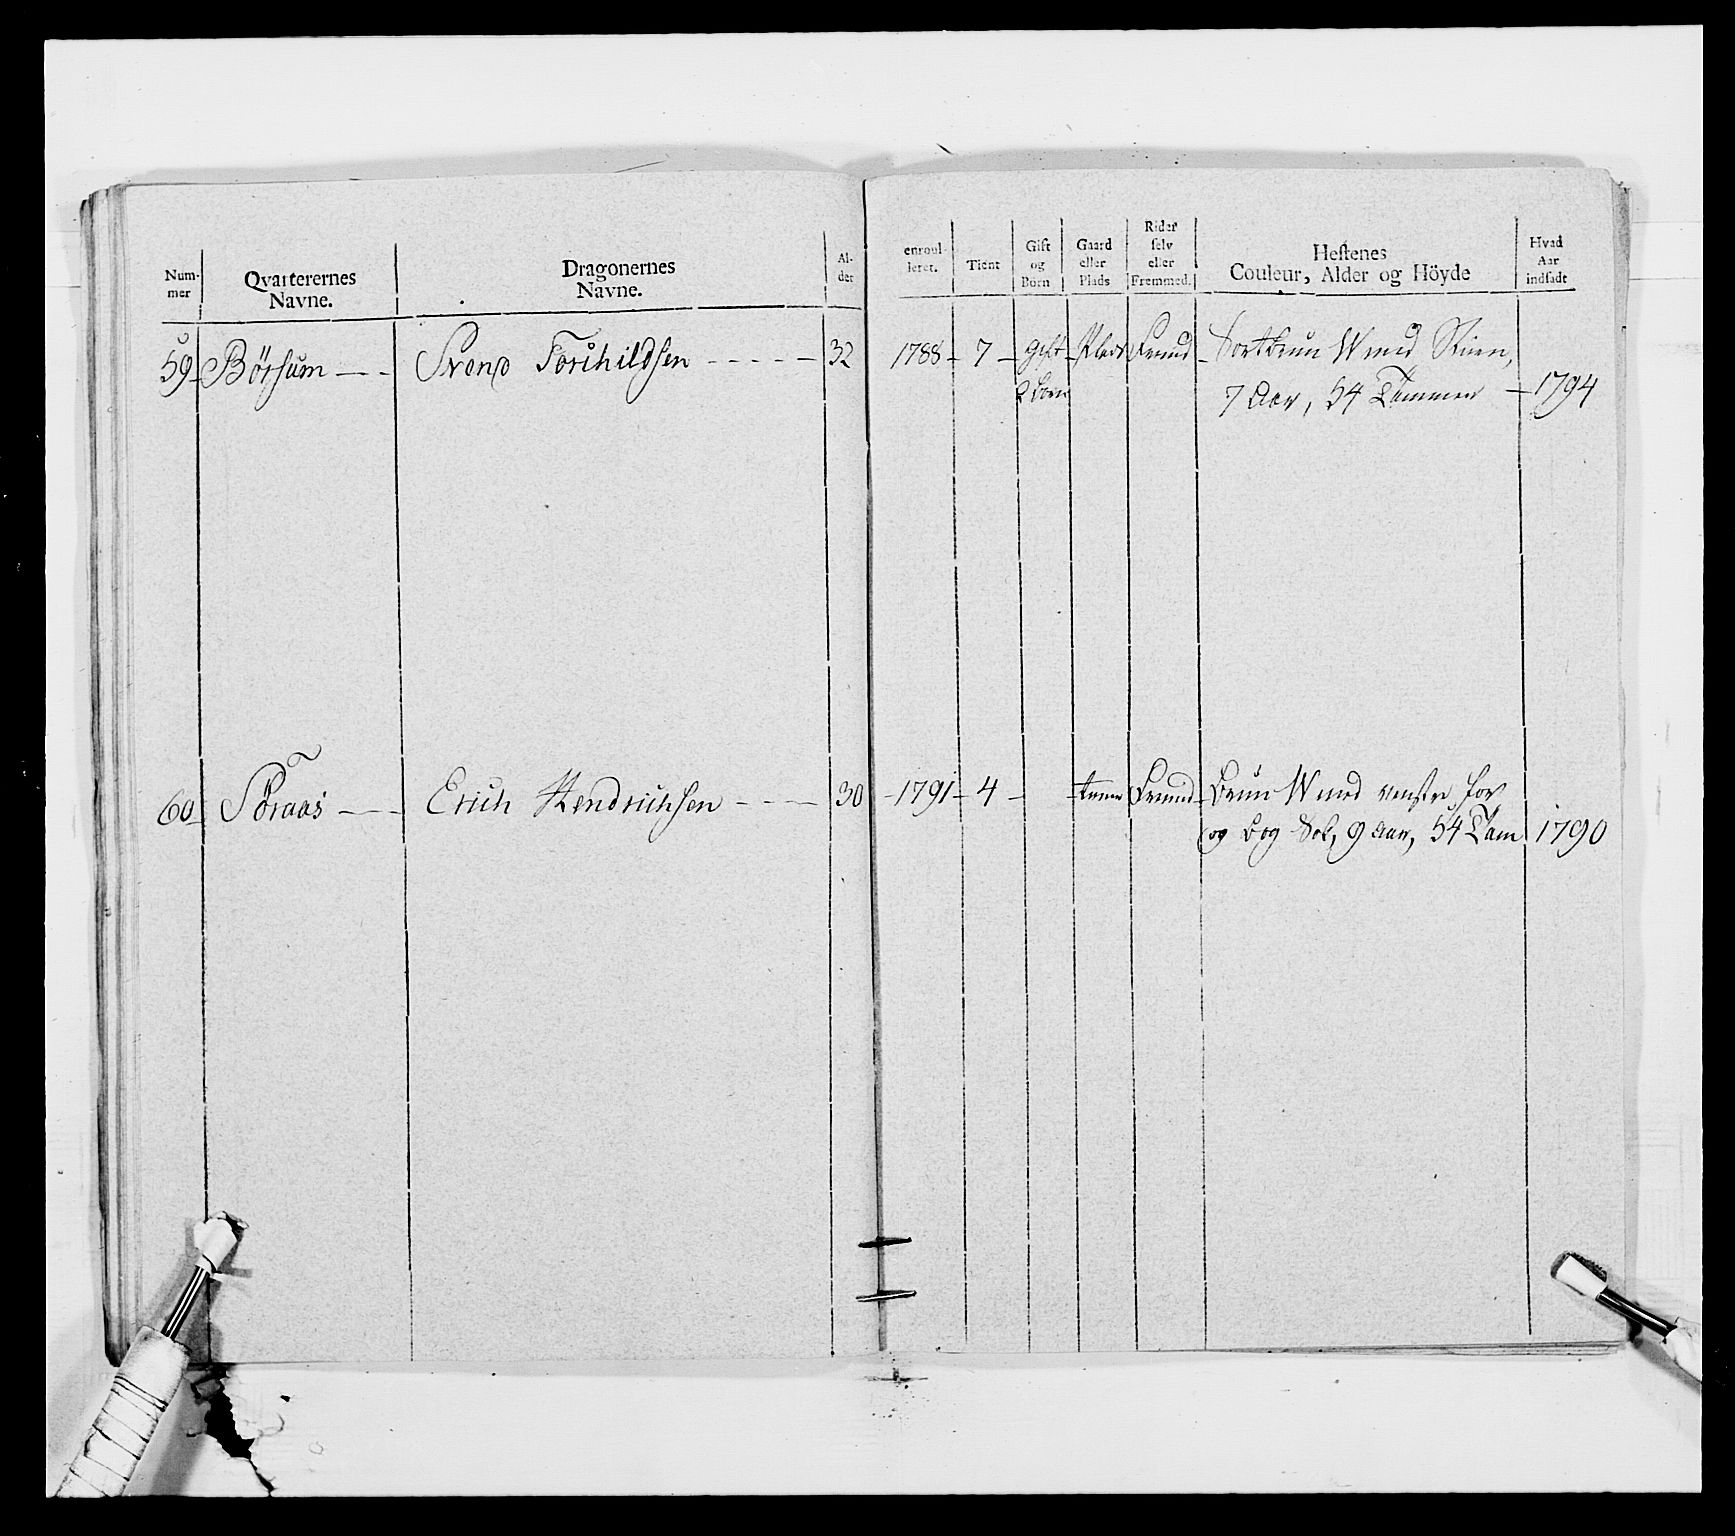 Num-
mer
Qvarterernes
Navne.
Dragonernes
Navne.
Al-
der
enroul-
leret.
Tient
Gift
og
Börn
Gaard
eller
Plads
Rider
selv
eller
Fremmed.
Hestenes
Couleur, Alder og Höyde
Hvad
Aar
indsadt
59 Börsum Svend Torchildsen 32 1788 7 gift Plads Fremd Sortbrun W med Stiern,
2 börn 7 Aar, 54 Tommer 1794
60 Söraas Erich Hendrichsen 30 1791 4 Fremd Brun W med venstre for
og bag Sok, 9 Aar, 54 Tom 1790